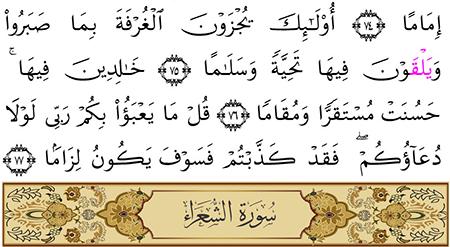 إِمَامًا ٧٤ أُوْلَٰٓئِكَ يُجْزَوْنَ ٱلْغُرْفَةَ بِمَا صَبَرُواْ
وَيَلْقَوْنَ فِيهَا تَحِيَّةً وَسَلَٰمًا ٧٥ خَٰلِدِينَ فِيهَا ۚ
حَسُنَتْ مُسْتَقَرًّا وَمُقَامًا ٧٦ قُلْ مَا يَعْبَؤُاْ بِكُمْ رَبِّي لَوْلَا
دُعَآؤُكُمْ ۖ فَقَدْ كَذَّبْتُمْ فَسَوْفَ يَكُونُ لِزَامًا ٧٧
سُورَةُ الشُّعَرَاء